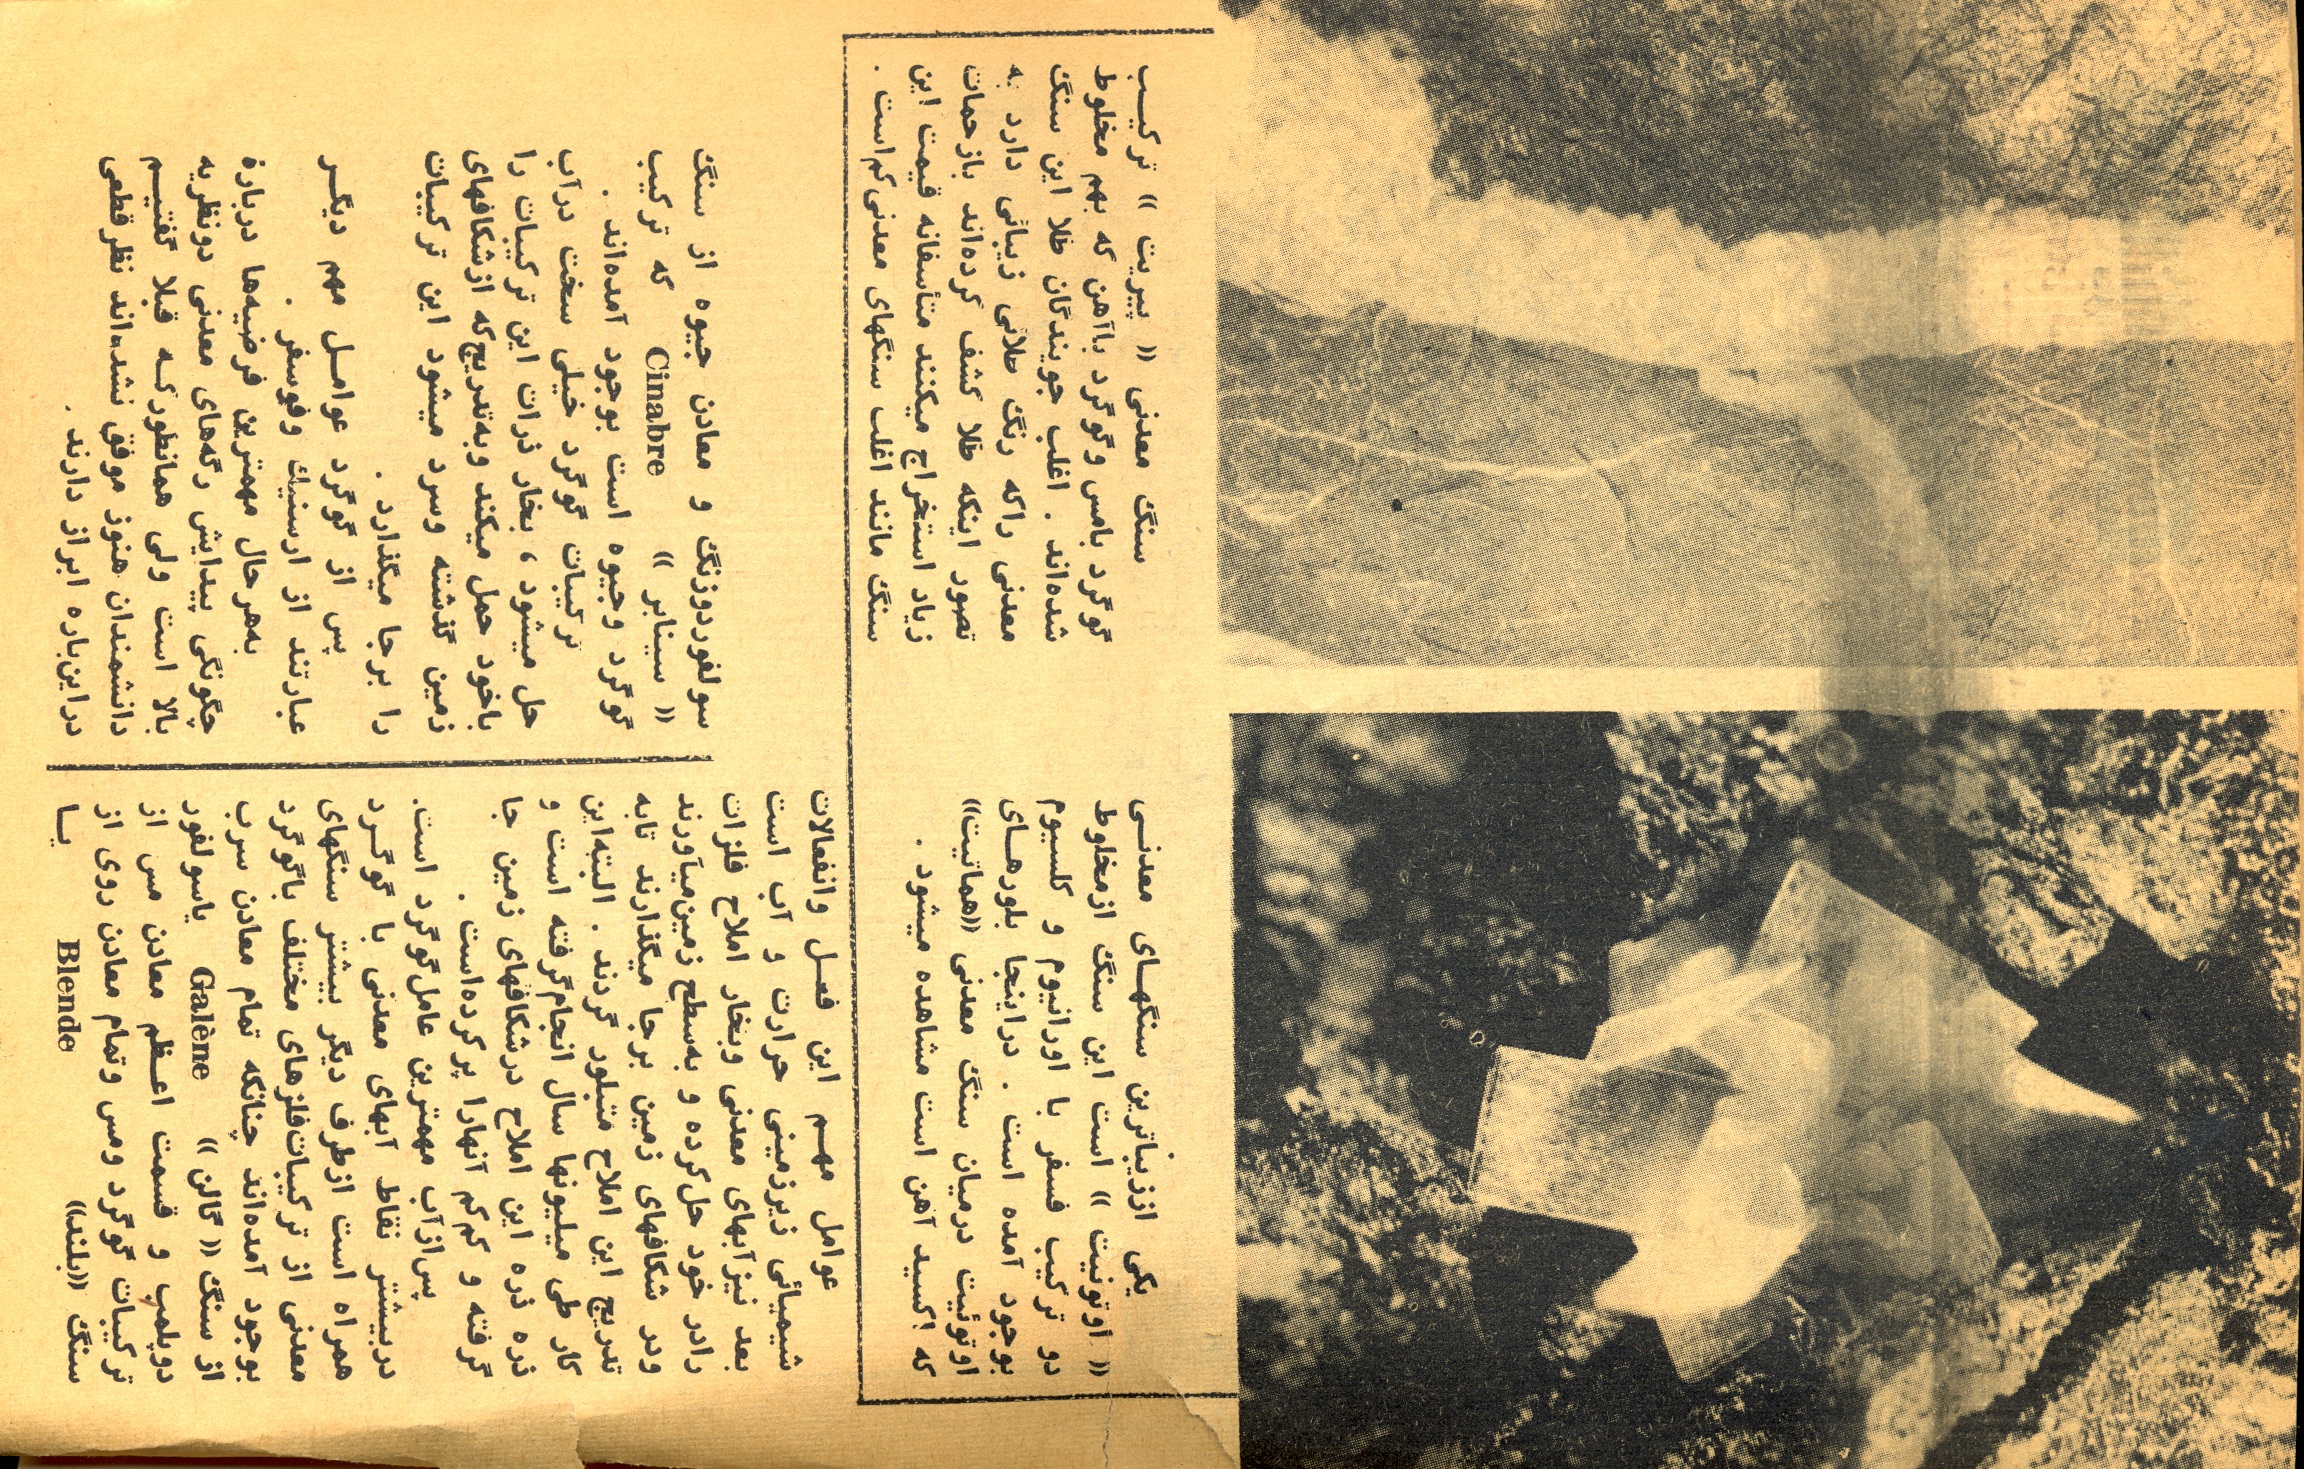 یکی اززیباترین سنگهـای معدنـی
« اوتونیت » است این سنگ ازمخلوط
دو ترکیب فسفر با اورانیوم و کلسیوم
بوجود آمده است . دراینجا بلورهـای
اوتونیت درمیان سنگ معدنی «هماتیت»
که اکسید آهن است مشاهده میشود .
سنگ معدنی « پیریت » ترکیـب
گوگرد بامس وگوگرد باآهن که بهم مخلوط
شده‌اند . اغلب جویندگان طلا این سنگ
معدنی راکه رنگ طلائی زیبائی دارد به
تصور اینکه طلا کشف کرده‌اند بازحمات
زیاد استخراج میکنند متأسفانه قیمت این
سنگ مانند اغلب سنگهای معدنی‌کم‌است .
عوامل مهـم این فعـل وانفعالات
شیمیائی زیرزمینی حرارت و آب است
بعد نیزآبهای معدنی وبخار املاح فلزات
رادر خود حل‌کرده و به‌سطح زمین‌میآورند
ودر شکافهای زمین برجا میگذارند تابه
تدریج این املاح متبلور گردند . البته‌این
کار طی میلیونها سال انجام‌گرفته است و
ذره ذره این املاح درشکافهای زمین جا
گرفته و کم‌کم آنهارا پرکرده‌است .
پس‌ازآب مهمترین عامل‌گوگرد است.
دربیشتر نقاط آبهای معدنی با گوگـرد
همراه است ازطرف دیگر بیشتر سنگهای
معدنی از ترکیبات‌فلزهای مختلف باگوگرد
بوجود آمده‌اند چنانکه تمام معادن سرب
از سنگ « گالن » Galène یاسولفور
دوپلمب و قسمت اعـظم معادن مس از
ترکیبات گوگرد ومس وتمام معادن روی از
سنگ «بلند» Blende یـا
سولفوردوزنگ و معادن جیوه از سنگ
« سینابر » Cinabre که ترکیب
گوگرد وجیوه است بوجود آمده‌اند .
ترکیبات گوگرد خیلی سخت درآب
حل میشود ، بخار ذرات این ترکیبات را
باخود حمل میکند وبه‌تدریج‌که ازشکافهای
زمین گذشته وسرد میشود این ترکیبات
را برجا میگذارد .
پس از گوگرد عوامـل مهم دیگـر
عبارتند از ارسنیك وفوسفر .
به‌هرحال مهمترین فرضیه‌ها دربارهٔ
چگونگی پیدایش رگه‌های معدنی دونظریه
بالا است ولی همانطورکـه قبلا گفتیـم
دانشمندان هنوز موفق نشده‌اند نظرقطعی
دراین‌باره ابراز دارند .